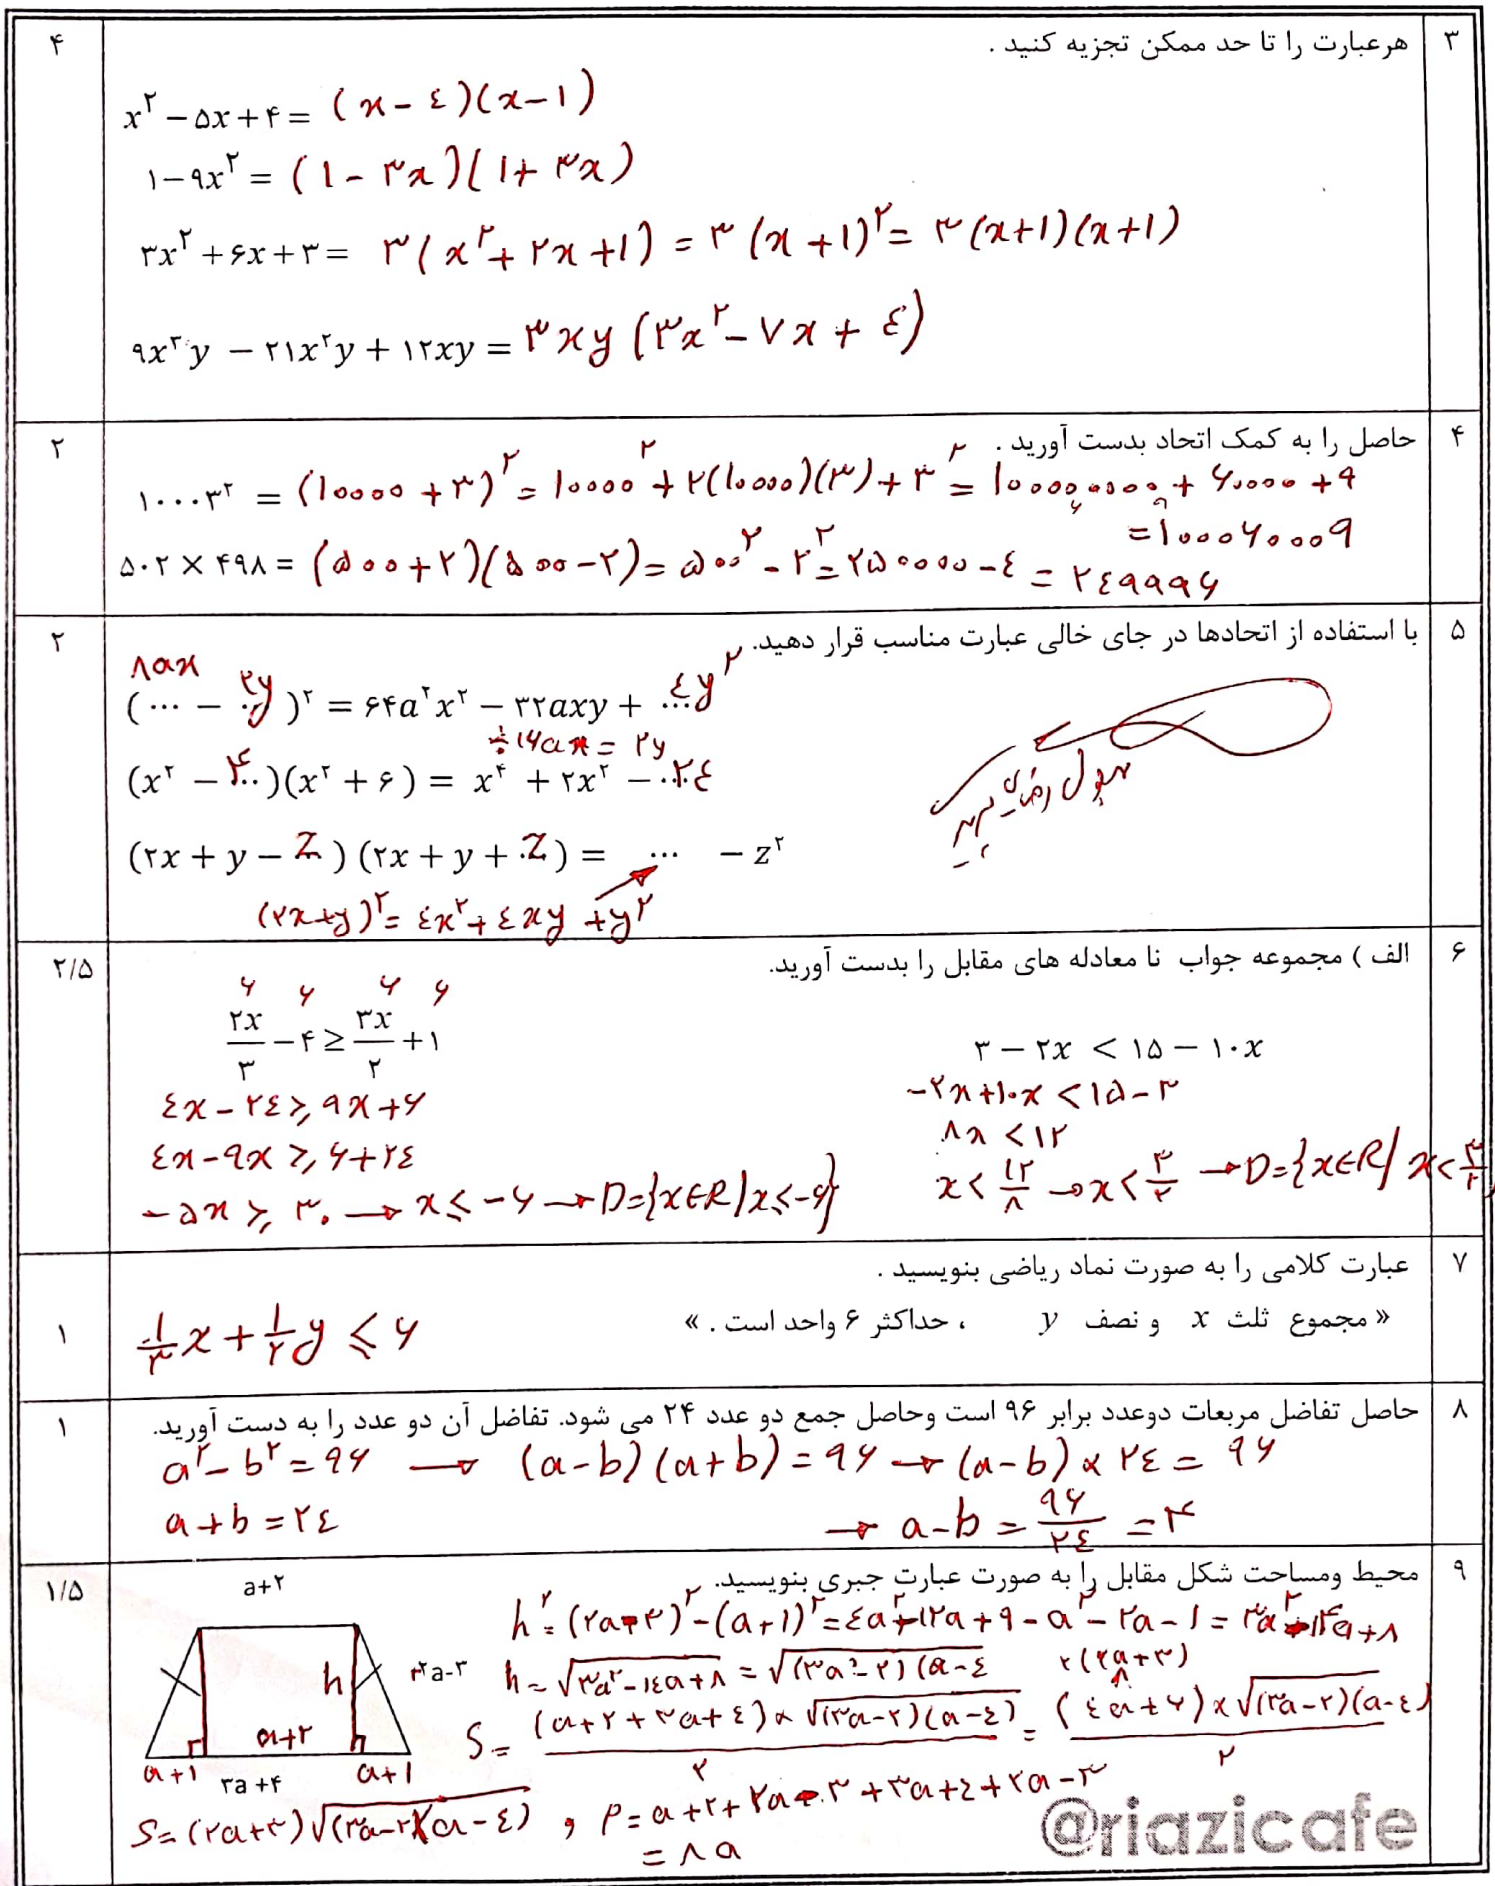 ۳ هرعبارت را تا حد ممکن تجزیه کنید . ۴
x^۲ − ۵x + ۴ = (x − ٤)(x − ۱)
۱ − ۹x^۲ = (۱ − ۳x)(۱ + ۳x)
۳x^۲ + ۶x + ۳ = ۳(x^۲ + ۲x + ۱) = ۳(x + ۱)^۲ = ۳(x+۱)(x+۱)
۹x^۳y − ۲۱x^۲y + ۱۲xy = ۳xy(۳x^۲ − ۷x + ٤)
۴ حاصل را به کمک اتحاد بدست آورید . ۲
۱۰۰۰۳^۲ = (۱۰۰۰۰ + ۳)^۲ = ۱۰۰۰۰^۲ + ۲(۱۰۰۰۰)(۳) + ۳^۲ = ۱۰۰۰۰۰۰۰۰ + ۶۰۰۰۰ + ۹
= ۱۰۰۰۶۰۰۰۹
۵۰۲ × ۴۹۸ = (۵۰۰+۲)(۵۰۰−۲) = ۵۰۰^۲ − ۲^۲ = ۲۵۰۰۰۰ − ٤ = ۲٤۹۹۹۶
۵ با استفاده از اتحادها در جای خالی عبارت مناسب قرار دهید. ۲
(... ۸ax − ۲y)^۲ = ۶۴a^۲x^۲ − ۳۲axy + ...٤y^۲
÷۱۶ax = ۲y
(x^۲ − ۴..)(x^۲ + ۶) = x^۴ + ۲x^۲ − ..۲٤
(۲x + y − z)(۲x + y + z) = ... − z^۲
(۲x+y)^۲ = ٤x^۲ + ٤xy + y^۲
۶ الف ) مجموعه جواب نا معادله های مقابل را بدست آورید. ۲/۵
۶ ۶ ۶ ۶
۲x/۳ − ۴ ≥ ۳x/۲ + ۱
٤x − ۲٤ ≥ ۹x + ۶
٤x − ۹x ≥ ۶ + ۲٤
−۵x ≥ ۳۰ → x ≤ −۶ → D={x∈R | x≤−۶}
۳ − ۲x < ۱۵ − ۱۰x
−۲x + ۱۰x < ۱۵ − ۳
۸x < ۱۲
x < ۱۲/۸ → x < ۳/۲ → D={x∈R | x<۳/۲}
۷ عبارت کلامی را به صورت نماد ریاضی بنویسید . ۱
« مجموع ثلث x و نصف y ، حداکثر ۶ واحد است . »
۱/۳ x + ۱/۲ y ≤ ۶
۸ حاصل تفاضل مربعات دوعدد برابر ۹۶ است وحاصل جمع دو عدد ۲۴ می شود. تفاضل آن دو عدد را به دست آورید. ۱
a^۲ − b^۲ = ۹۶ → (a−b)(a+b) = ۹۶ → (a−b) × ۲٤ = ۹۶
a + b = ۲٤ → a−b = ۹۶/۲٤ = ۴
۹ محیط ومساحت شکل مقابل را به صورت عبارت جبری بنویسید. ۱/۵
a+۲
h
۲a−۳
a+۲
a+۱
a+۱
۳a+۴
h^۲ = (۲a−۳)^۲ − (a+۱)^۲ = ٤a^۲−۱۲a + ۹ − a^۲ − ۲a − ۱ = ۳a^۲−۱۴a + ۸
h = √(۳a^۲−۱٤a+۸) = √(۳a−۲)(a−٤
۲(۲a+۳)
S = (a+۲+۳a+٤) × √(۳a−۲)(a−٤) / ۲ = (٤a+۶) × √(۳a−۲)(a−٤) / ۲
S = (۲a+۳)√(۳a−۲)(a−٤) , P = a+۲+۲a−۳+۳a+٤+۲a−۳
= ۸a
@riazicafe